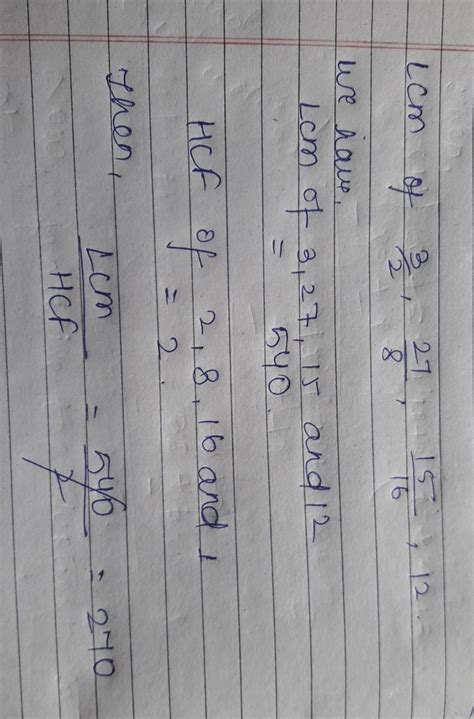 Lcm of 3/2, 27/8, 15/16, 12.
we have,
Lcm of 3, 27, 15 and 12
= 540.
HCF of 2, 8, 16 and 1
= 2.
Then,
Lcm/HCF = 540/2 = 270